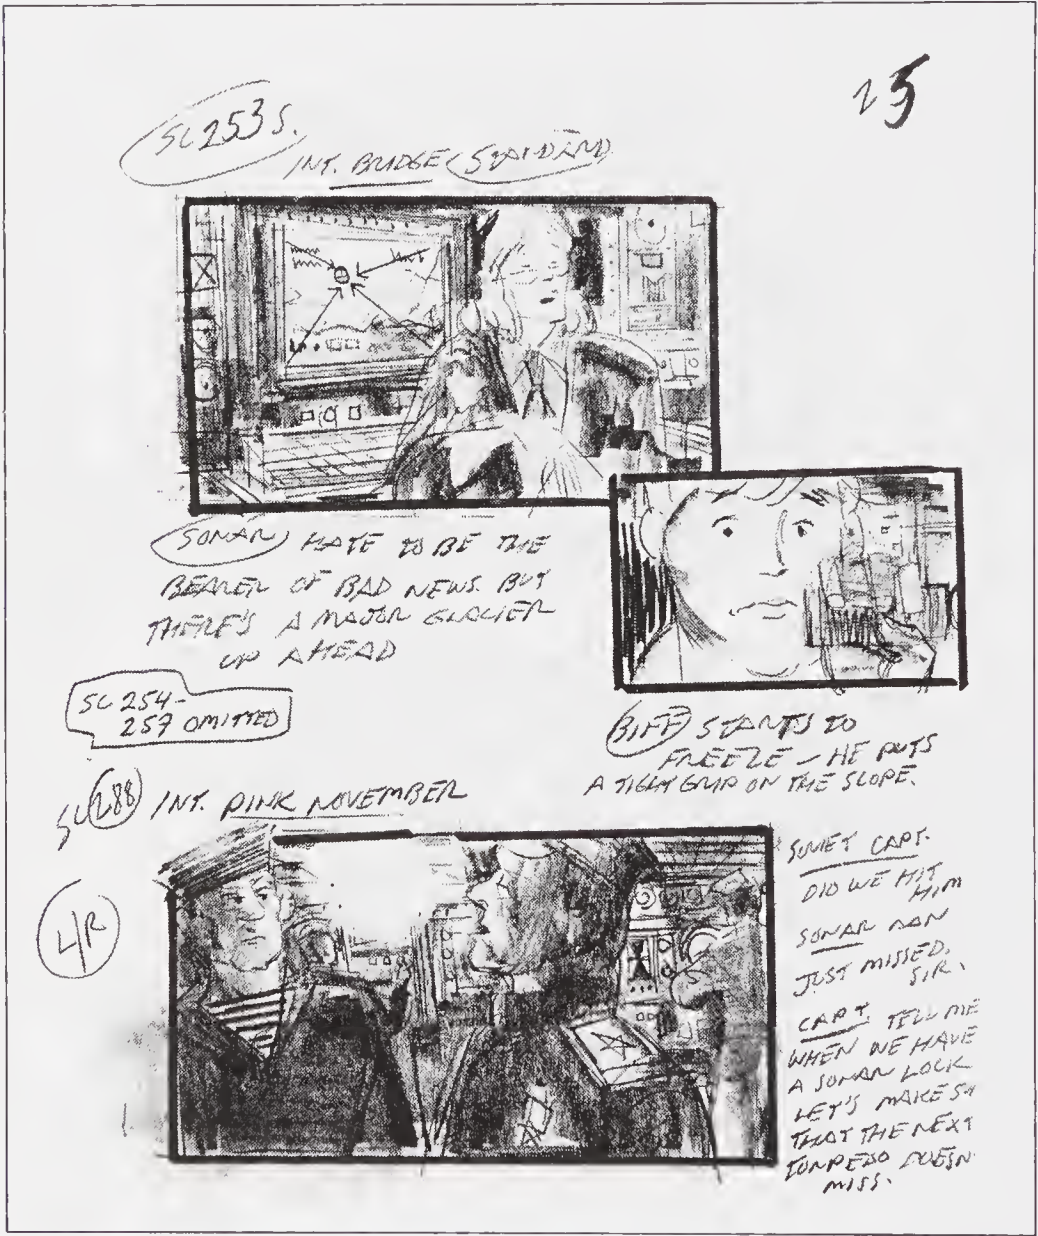 25
SC 253 S.
INT. BRIDGE STANDARD
SONAR HATE TO BE THE
BEARER OF BAD NEWS. BUT
THERE'S A MAJOR GLACIER
UP AHEAD
SC 254-
257 OMITTED
BIFF STARTS TO
FREEZE - HE PUTS
A TIGHT GRIP ON THE SLOPE.
SC 288 INT. PINK NOVEMBER
4R
SOVIET CAPT.
DID WE HIT
HIM
SONAR MAN
JUST MISSED,
SIR.
CAPT. TELL ME
WHEN WE HAVE
A SONAR LOCK
LET'S MAKE
THAT THE NEXT
TORPEDO DOESN
MISS.